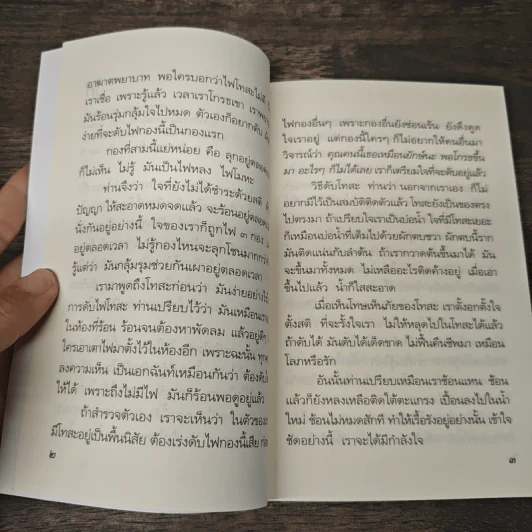 อาฆาตพยาบาท พอใครบอกว่าไฟโทสะไม่ดี
เราเชื่อ เพราะรู้แล้ว เวลาเราโกรธเขา เรา
มันร้อนรุ่มกลุ้มใจไปหมด ตัวเองก็อยากดับ
ง่ายที่จะดับไฟกองนี้เป็นกองแรก
กองที่สามนี้แย่หน่อย คือ ลุกอยู่ตลอด
ก็ไม่เห็น ไม่รู้ มันเป็นไฟหลง ไฟโมหะ
ท่านจึงว่า ใจที่ยังไม่ได้ชำระด้วยสติ
ปัญญา ให้สะอาดหมดจดแล้ว จะร้อนอยู่ตลอด
นั่งกันอยู่อย่างนี้ ใจของเราก็ถูกไฟ ๓ กอง
อยู่ตลอดเวลา ไม่รู้กองไหนจะลุกโชนมากกว่า
รู้แต่ว่า มันกลุ้มรุมช่วยกันเผาอยู่ตลอดเวลา
เรามาพูดถึงโทสะก่อนว่า มันง่ายอย่างไร
การดับไฟโทสะ ท่านเปรียบไว้ว่า มันเหมือนเรา
ในห้องที่ร้อน ร้อนจนต้องหาพัดลม แล้วอยู่ดีๆ
ใครเอาเตาไฟมาตั้งไว้ในห้องอีก เพราะฉะนั้น ทุก
ลงความเห็น เป็นเอกฉันท์เหมือนกันว่า ต้องดับ
ให้ได้ เพราะถึงไม่มีไฟ มันก็ร้อนพอดูอยู่แล้ว
ถ้าสำรวจตัวเอง เราจะเห็นว่า ในตัวของ
มีโทสะอยู่เป็นพื้นนิสัย ต้องเร่งดับไฟกองนี้เสีย ก่อน
๒
ไฟกองอื่นๆ เพราะกองอื่นยังซ่อนเร้น ยังดึงดูด
ใจเราอยู่ แต่กองนี้ใครๆ ก็ไม่อยากให้คนอื่นมา
วิจารณ์ว่า คุณคนนี้เธอเหมือนยักษ์นะ พอโกรธขึ้น
มา อะไรๆ ก็ไม่ได้เลย เราก็เตรียมใจที่จะดับอยู่แล้ว
วิธีดับโทสะ ท่านว่า นอกจากเราเอง ก็ไม่
อยากมีไว้เป็นสมบัติติดตัวแล้ว โทสะยังเป็นของตรง
ไปตรงมา ถ้าเปรียบใจเราเป็นบ่อน้ำ ใจที่มีโทสะเยอะ
ก็เหมือนบ่อน้ำที่เต็มไปด้วยผักตบชวา ผักตบนี้ราก
มันติดแน่นกับลำต้น ถ้าเรากวาดต้นขึ้นมาได้ มัน
จะขึ้นมาทั้งหมด ไม่เหลืออะไรติดค้างอยู่ เมื่อเอา
ขึ้นไปแล้ว น้ำก็ใสสะอาด
เมื่อเห็นโทษเห็นภัยของโทสะ เราตั้งอกตั้งใจ
ตั้งสติ ที่จะรั้งใจเรา ไม่ให้หลุดไปในโทสะได้แล้ว
ถ้าดับได้ มันดับได้เด็ดขาด ไม่ฟื้นคืนชีพมา เหมือน
โลภหรือรัก
อันนั้นท่านเปรียบเหมือนเราช้อนแหน ช้อน
แล้วก็ยังหลงเหลือติดใต้ตะแกรง เปื้อนลงไปในน้ำ
ใหม่ ช้อนไม่หมดสักที ทำให้เรื้อรังอยู่อย่างนั้น เข้าใจ
ชัดอย่างนี้ เราจะได้มีกำลังใจ
๓